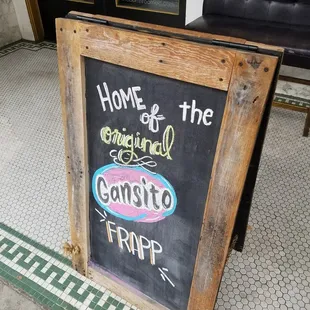 HOME of the
original
Gansito
FRAPP